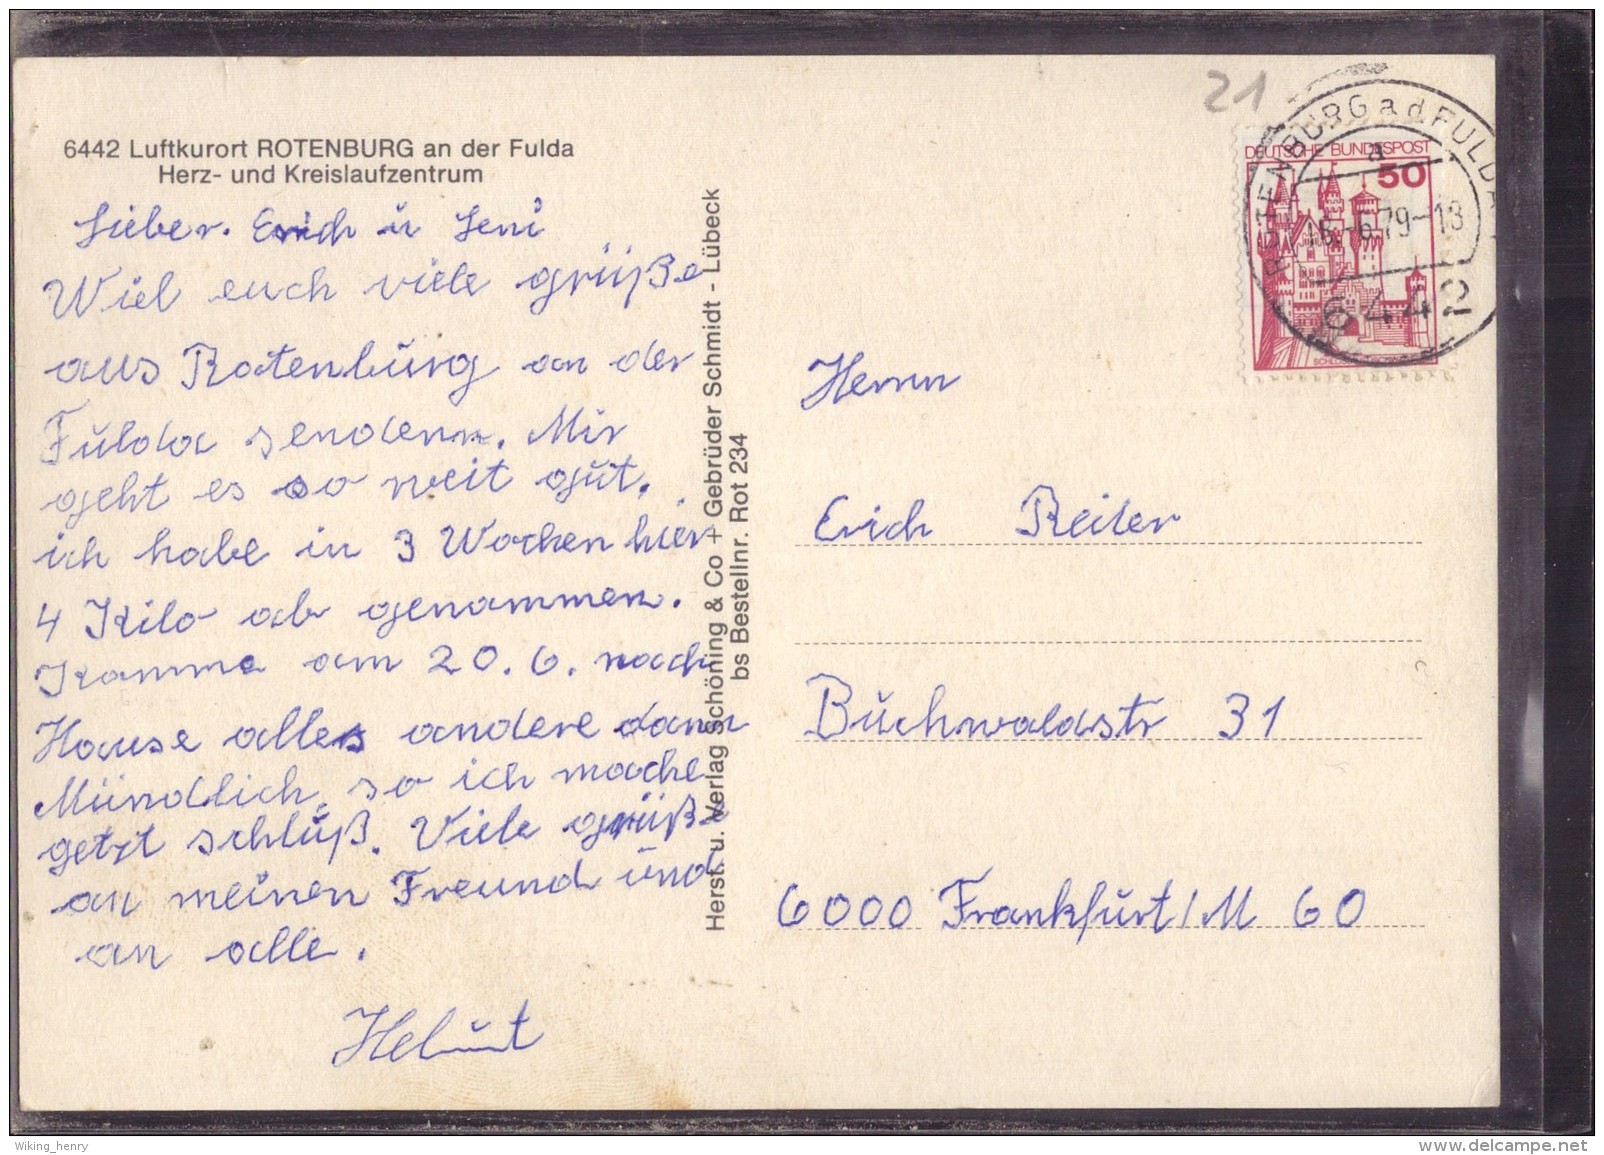 6442 Luftkurort ROTENBURG an der Fulda
Herz- und Kreislaufzentrum
Lieber. Erich u Leni
Wiel euch viele grüße
aus Rotenburg an der
Fulda senden. Mir
geht es so weit gut.
ich habe in 3 Wochen hier
4 Kilo ab genommen.
Komme am 20.6. nach
Hause alles andere dann
Mündlich, so ich mache
getzt schluß. Viele grüße
an meinen Freund und
an alle.
Helmut
Herst. u. Verlag Schöning & Co + Gebrüder Schmidt - Lübeck
bs Bestellnr. Rot 234
21
DEUTSCHE BUNDESPOST
50
ROTENBURG a d FULDA
a
-6.79-13
6442
Herrn
Erich Reiter
Buchwaldstr 31
6000 Frankfurt/M 60
Wiking_henry
www.delcampe.net